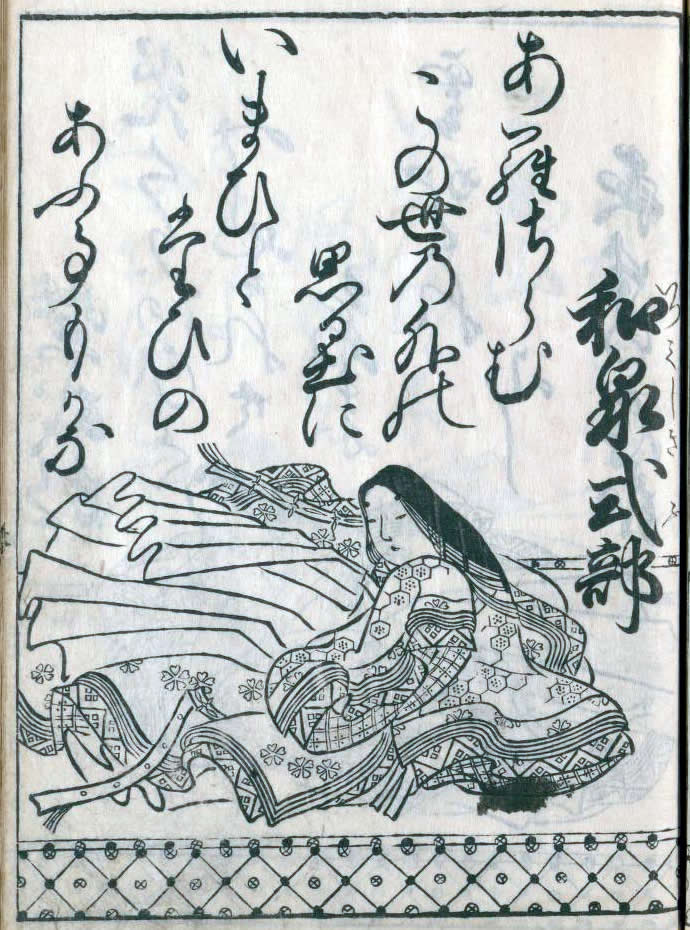 和泉式部
いつみしきふ
あらさらむ
この世の外の
思ひ出に
いまひと
たひの
あふ事もかな